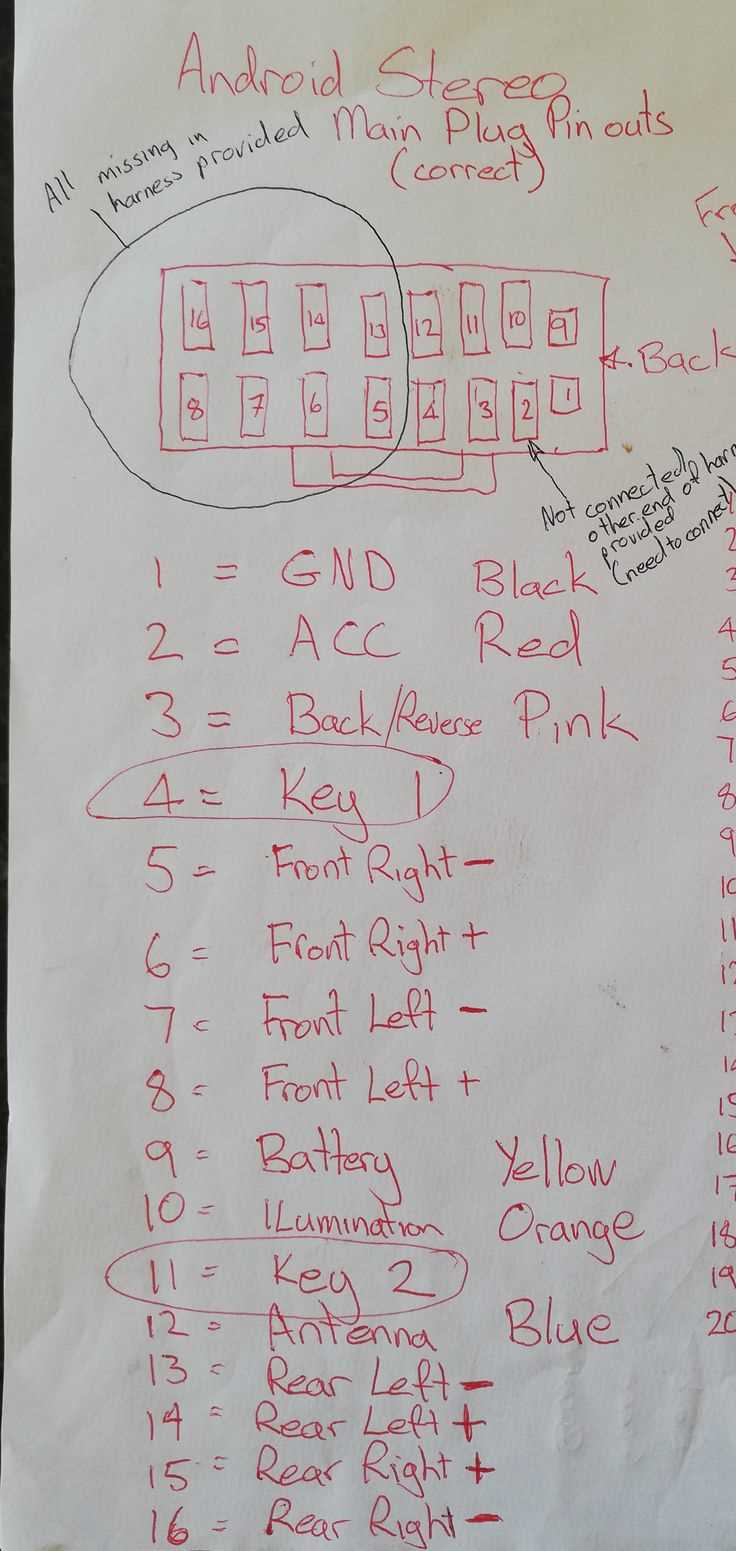 Android Stereo
Main Plug Pin outs
(correct)
All missing in
harness provided
16 15 14 13 12 11 10 9
8 7 6 5 4 3 2 1
Back
Not connected
other end of harn
provided
(need to connect)
1 = GND Black
2 = ACC Red
3 = Back/Reverse Pink
4 = Key 1
5 = Front Right -
6 = Front Right +
7 = Front Left -
8 = Front Left +
9 = Battery Yellow
10 = ILumination Orange
11 = Key 2
12 = Antenna Blue
13 = Rear Left -
14 = Rear Left +
15 = Rear Right +
16 = Rear Right -
Fro
1
2
3
4
5
6
7
8
9
10
11
12
13
14
15
16
17
18
19
20